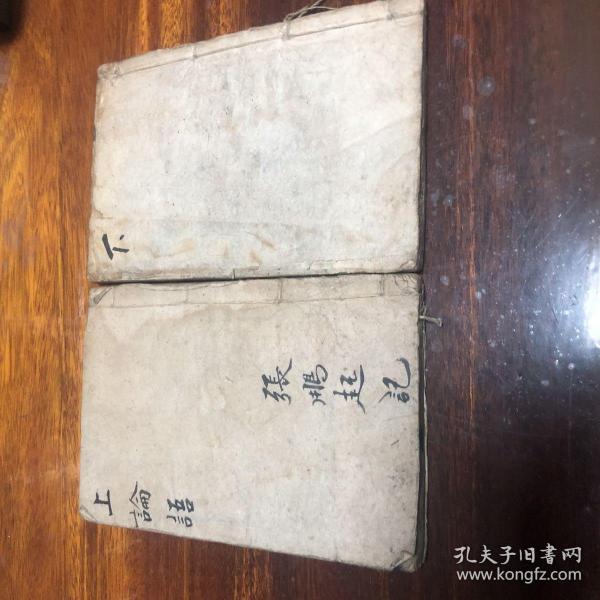 下
張鵬起記
上論語
孔夫子旧書网
www.kongfz.com